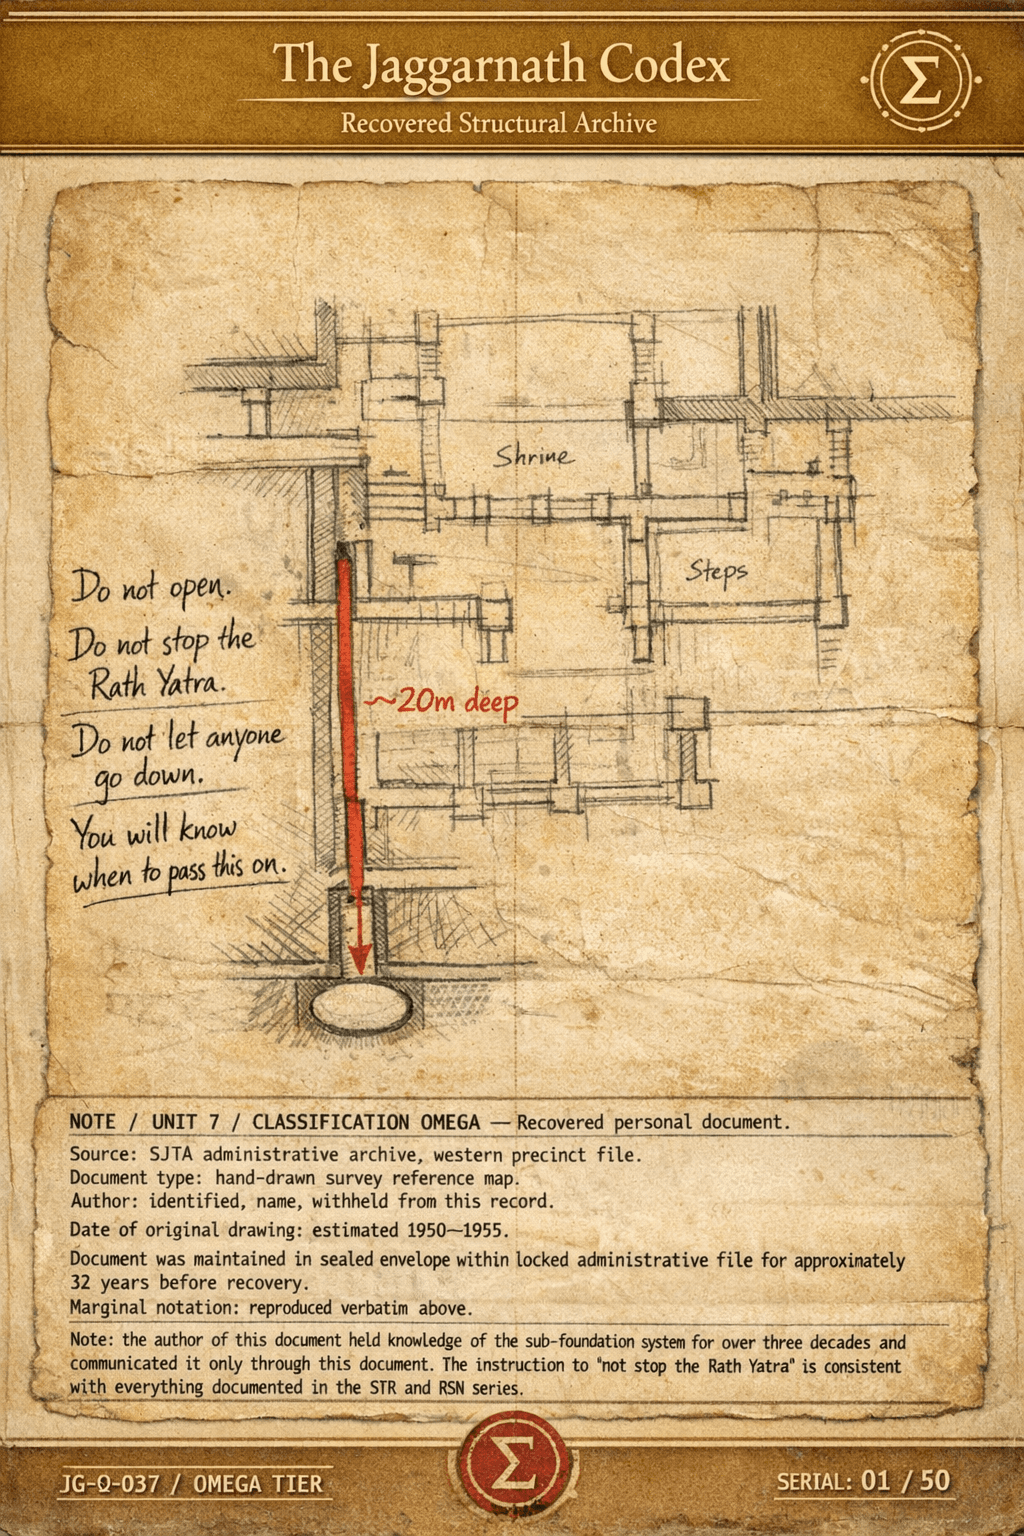 The Jaggarnath Codex
Recovered Structural Archive
Σ
Shrine
Steps
Do not open.
Do not stop the
Rath Yatra.
~20m deep
Do not let anyone
go down.
You will know
when to pass this on.
NOTE / UNIT 7 / CLASSIFICATION OMEGA — Recovered personal document.
Source: SJTA administrative archive, western precinct file.
Document type: hand-drawn survey reference map.
Author: identified, name, withheld from this record.
Date of original drawing: estimated 1950—1955.
Document was maintained in sealed envelope within locked administrative file for approxinately
32 years before recovery.
Marginal notation: reproduced verbatim above.
Note: the author of this document held knowledge of the sub-foundation system for over three decades and
communicated it only through this document. The instruction to "not stop the Rath Yatra" is consistent
with everything documented in the STR and RSN series.
JG-Ω-037 / OMEGA TIER
Σ
SERIAL: 01 / 50